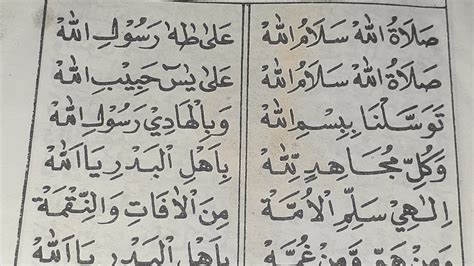 صَلَاةُ اللهْ سَلَامُ اللهْ عَلَى طٰهٰ رَسُوْلِ اللهْ
صَلَاةُ اللهْ سَلَامُ اللهْ عَلَى يٰسٓ حَبِيْبِ اللهْ
تَوَسَّلْنَا بِبِسْمِ اللهْ وَبِالْهَادِيْ رَسُوْلِ اللهْ
وَكُلِّ مُجَاهِدٍ لِلّٰهْ بِاَهْلِ الْبَدْرِ يَا اَللهْ
اِلٰهِيْ سَلِّمِ الْاُمَّةْ مِنَ الْاٰفَاتِ وَالنِّقْمَةْ
وَمِنْ هَمٍّ وَمِنْ غُمَّةْ بِاَهْلِ الْبَدْرِ يَا اَللهْ